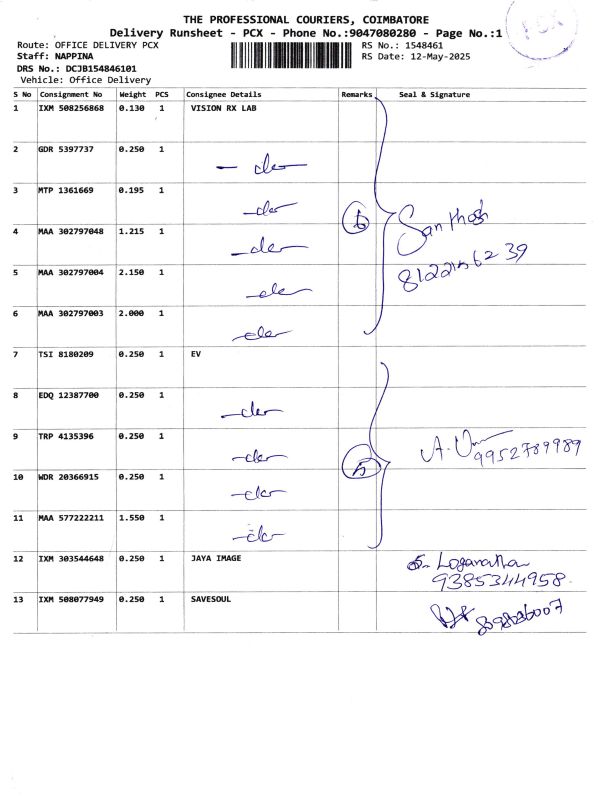 THE PROFESSIONAL COURIERS, COIMBATORE
Delivery Runsheet - PCX - Phone No.:9047080280 - Page No.:1
PCX
Route: OFFICE DELIVERY PCX
RS No.: 1548461
Staff: NAPPINA
RS Date: 12-May-2025
DRS No.: DCJB154846101
Vehicle: Office Delivery
S No Consignment No Weight PCS Consignee Details Remarks Seal & Signature
1 IXM 508256868 0.130 1 VISION RX LAB
2 GDR 5397737 0.250 1 - do -
3 MTP 1361669 0.195 1 - do -
4 MAA 302797048 1.215 1 - do -
5 MAA 302797004 2.150 1 - do -
6 MAA 302797003 2.000 1 - do -
6 Santhosh
7 TSI 8180209 0.250 1 EV
8 EDQ 12387700 0.250 1 - do -
9 TRP 4135396 0.250 1 - do -
10 WDR 20366915 0.250 1 - do -
11 MAA 577222211 1.550 1 - do -
5 9952789989
12 IXM 303544648 0.250 1 JAYA IMAGE
9385344958
13 IXM 508077949 0.250 1 SAVESOUL